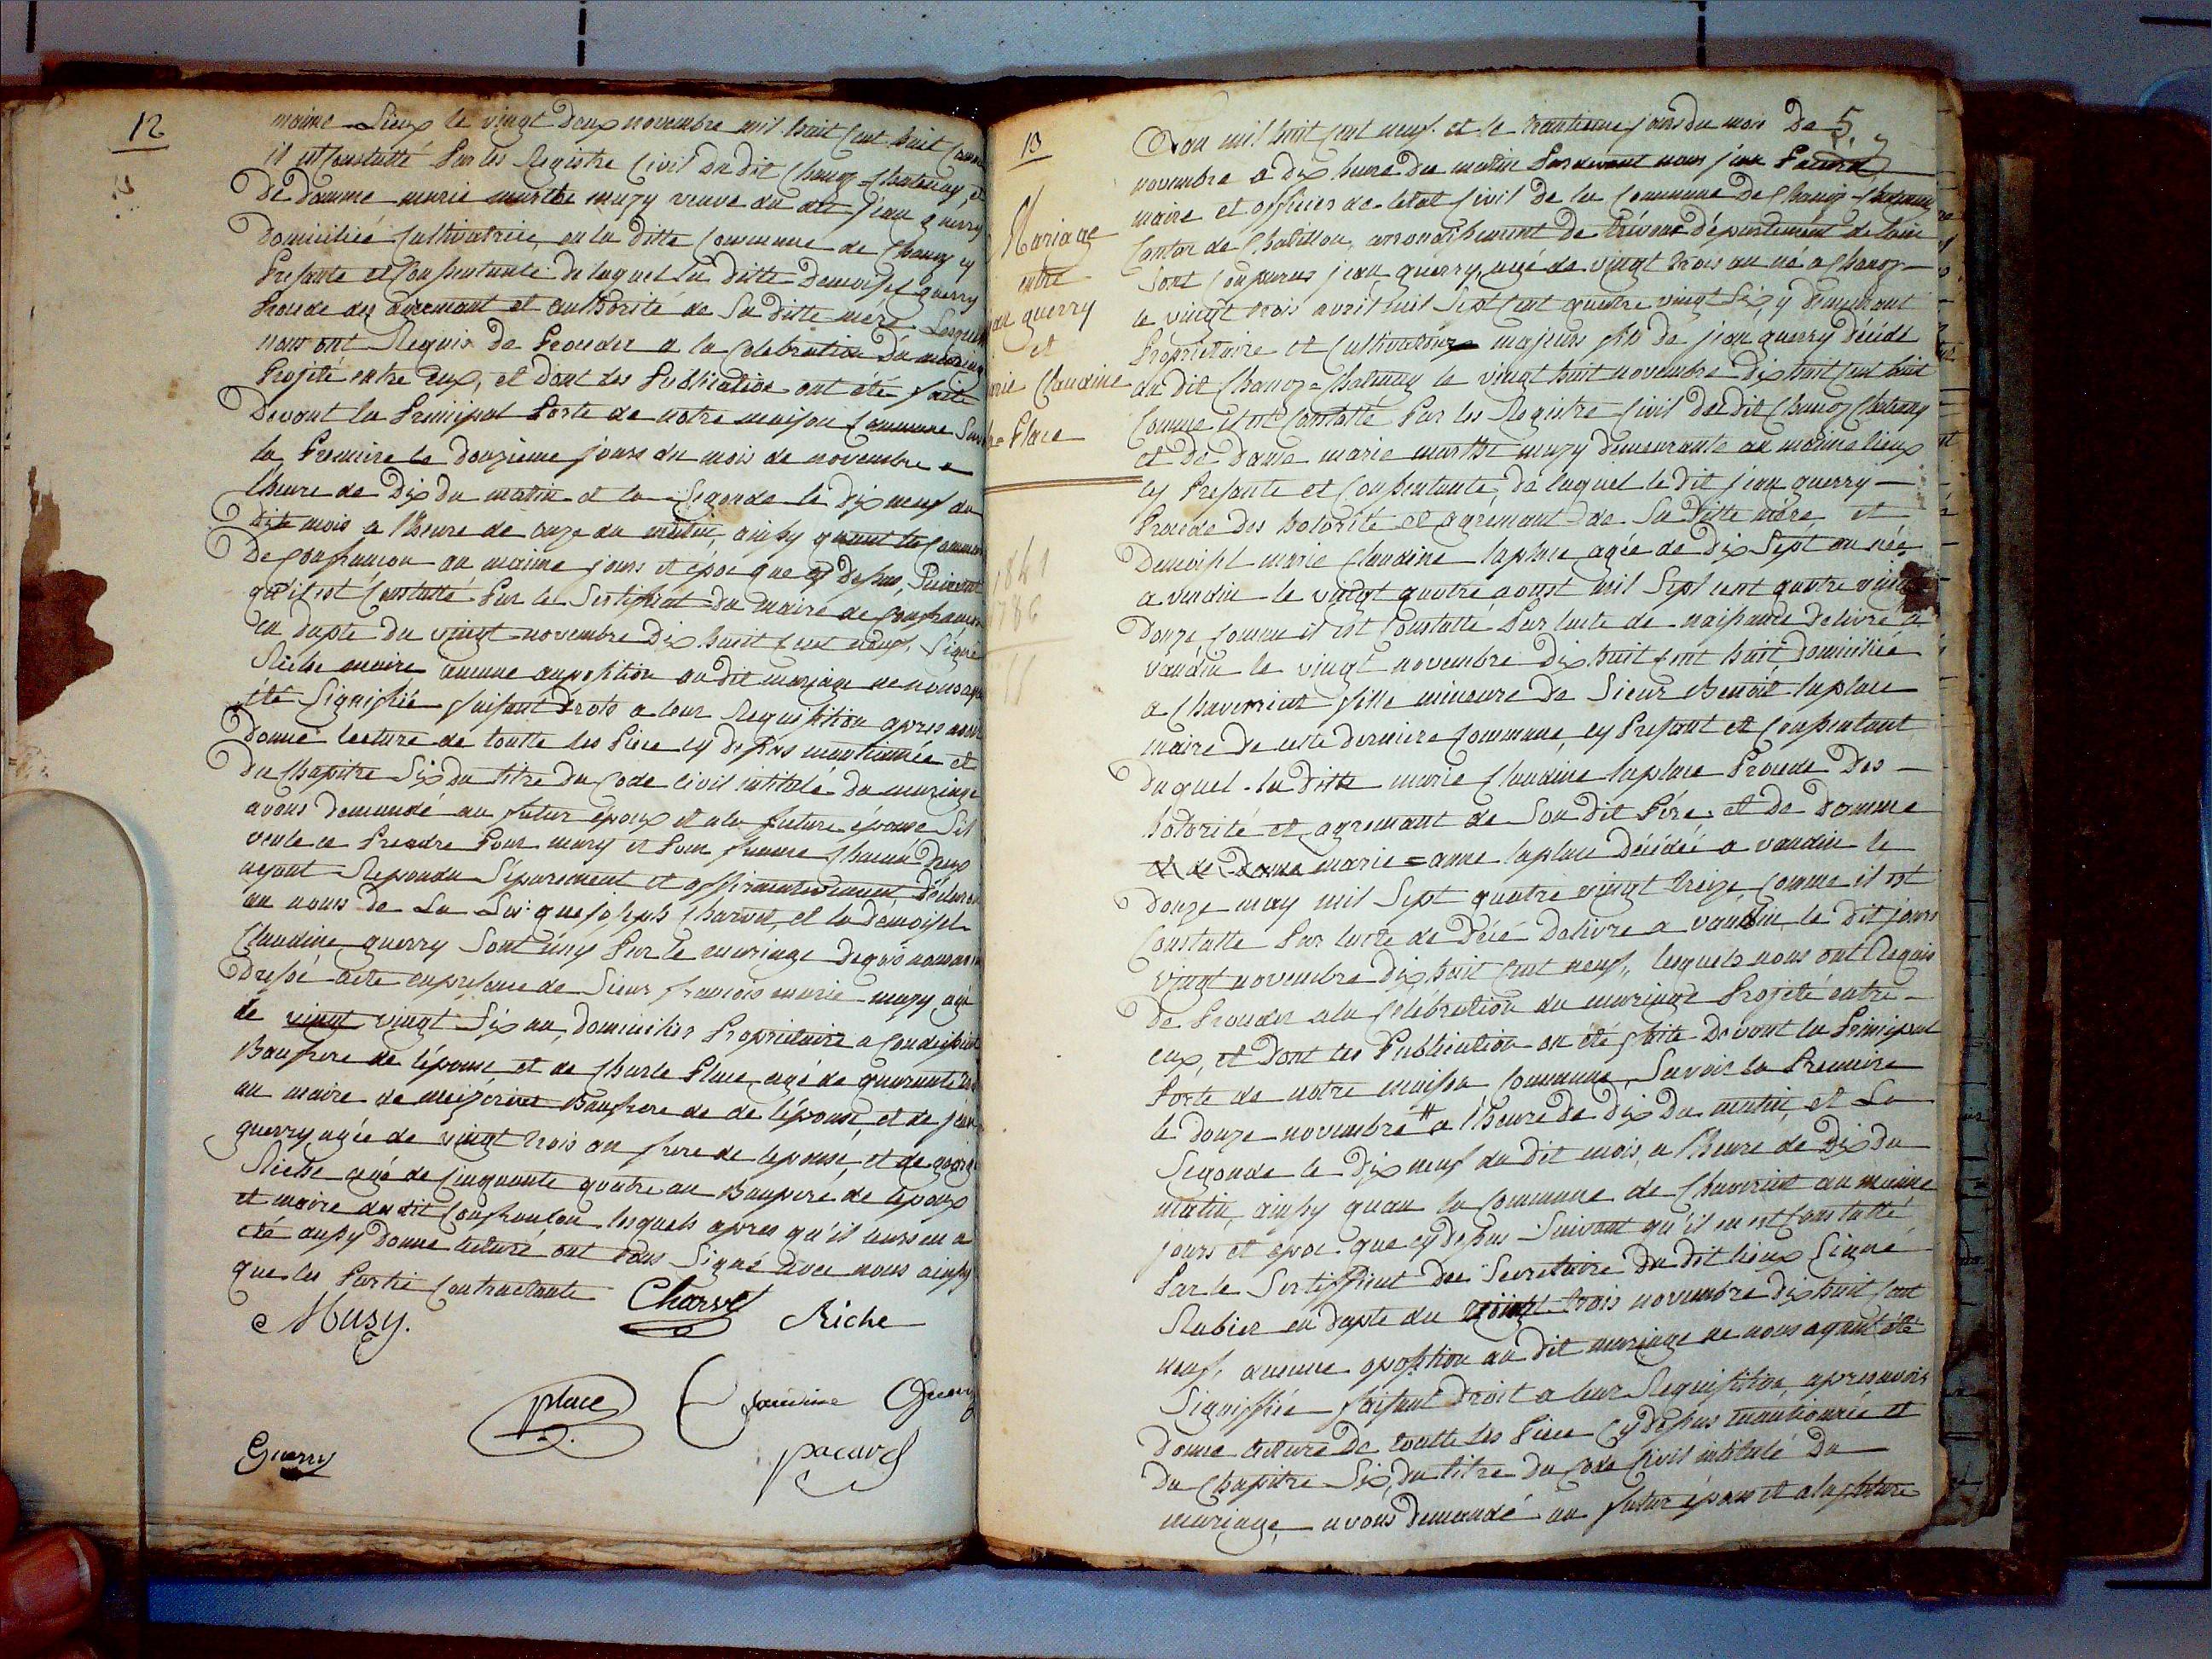 12
maime Lieux le vingt deux novembre mil huit cent huit comme
il est Constatté Par les Registre Civil du dit Chanoz-Chatenay, et
De damme marie marthe muzy veuve du dit jean guerry
Domiciliée Cultivatrice, en la ditte Commune de Chanoz cy
Presante et Conssentante de laquel la ditte Demoisel guerry
Procede des agremant et authorité de Sa ditte mere Lesquels
nous ont Requis De Proceder a la Celebration Du mariage
Projeté entre Eux, et Dont les Publication ont eté faite
Devant la Principal Porte de notre maison Commune Savoir
la Premiere le Douzieme jours du mois de novembre a
lheure de Dix du matin et la Segonde le Dix neuf du
Dite mois a l'heure de onze du matin, ainssy quant la Commune
De Confrancon au maime jours et époc que cy dessus, Suivant
qu'il est Constatté Par le Sertificat du maire de Confrancon
en dapte du vingt novembre Dix huit cent neuf, Signé
Riche maire aucune auposition au dit mariage ne nous ayant
été Signifié faisant Droits a leur Requisition apres avoir
Donné lecture de toutte les Piece cy dessus mantionnée et
Du Chapitre Six du titre du Code Civil intitulé Du mariage
avons demandé au futur époux et a la future épouse S'il
veule ce Prendre Pour mary et Pour femme Chacun Deux
ayant Repondu Séparement et affirmativement, Déclarons
au noms de La Loi que joseph Charvet, et la demoisel
Claudine guerry Sont unÿ Par le mariage Dequoi nous avons
Dressé acte en presance de Sieur francois marie muzy agé
de vingt vingt Six an, domicilier Proprietaire a Condessiat
Baufrere de l'épouse et de Charle Place, agé de quarante
an maire de meizeriat Baufrere de de l'épouse, et de jean
guerry, agée de vingt trois an frere de lepouse, et de
Riche agé de Cinquante quatre an Baupere de lépoux
et maire du dit Confrancon lesquels apres qu'il leurs en a
été aussy Donné lecture ont tous Signé avec nous ainssy
que les Partie Contractante
Musy. Charvet Riche
place Claudine Guerry
Guerry pacard
13
5
Mariage
entre
jean guerry
et
marie Claudine
la Place
1841
1786
11
L'an mil huit cent neuf et le trantieme jours du mois De
novembre a dix heure du matin Pardevant nous jean Pacard
maire et officier de letat Civil de la Commune De Chanoz-Chatenay
Canton de Chatillon, arronoissement De trévoux département de laine
Sont Comparus jean guerry, agé de vingt trois an né a Chanoz
le vingt trois avril mil Sept Cent quatre vingt Six, y demeurant
Proprietaire et Cultivateurs majeurs fils de jean guerry Décédé
du dit Chanoz=Chatenay le vingt huit novembre Dix huit cent huit
Comme il est Constatté Par les Registre Civil dudit Chanoz Chatenay
et De Dame marie marthe muzy demeurante au maime lieux
cy Presante et Conssentante, de laquel le dit jean guerry
Procede Des hotorité et agrémant de Sa Ditte mére et
Demoisel marie Claudine laplace agée de Dix Sept an née
a vandin le vingt quatre aoust mil Sept cent quatre vingt
Douze Comme il est Constatté Par lacte de naissance Delivré a
vandin le vingt novembre Dix huit cent huit Domiciliée
a Chaveriat fille mineure De Sieur Benoit laplace
maire De cette derniere Commune, cy Presant et Conssentant
Duquel la ditte marie Claudine laplace Procede Des
hotorité et agremant de Son dit Pére et De damme
et de dame marie=anne laplace Décédée a vandin le
Douze may mil Sept quatre vingt treize Comme il est
Constatte Par lacte de Décé Delivre a vandin, le dit jours
vingt novembre Dix huit cent neuf, lesquels nous ont Requis
De Proceder a la Celebration du mariage Projeté entre
eux, et Dont les Publication on été faite Devant la Principal
Porte de notre maison Commune, Savoir La Premiere
le Douze novembre # a l'heure De Dix Du matin, et La
Segonde le Dix neuf du Dit mois, a l'heure de Dix du
matin, ainssy quan la Commune de Chaveriat au maime
jours et époc que cy dessus Suivant qu'il en est Constatté
Par le Sertifficat Du Secretaire Du dit lieux Signe
Rabier en dapte du vingt trois novembre Dix huit cent
neuf, aucune oposition au dit mariage ne nous ayant été
Signiffiée faisant Droit a leur Requisition, apres avoir
Donné lecture De toutte les Piece Cy Dessus mantionnée et
Du Chapitre Six, du titre du Code Civil intitulé Du
mariage, avons Demandé au futur époux et a la future